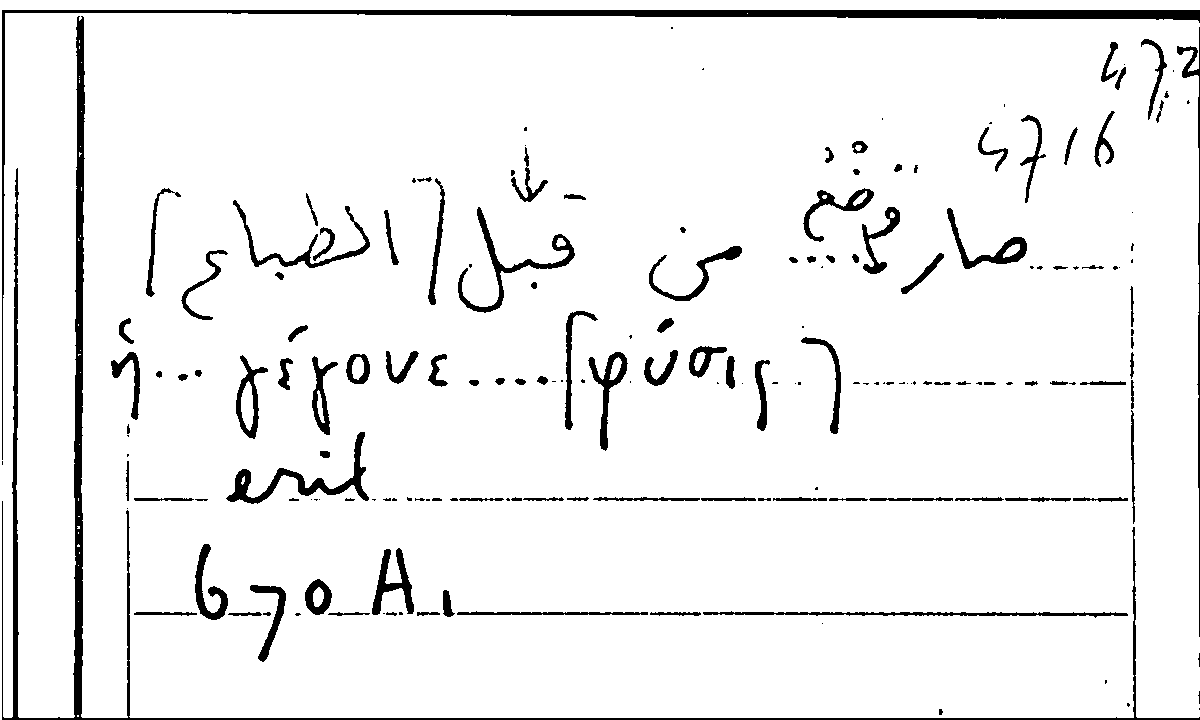 472
4716
صار ... من قبل ⌈الطباع⌉
ἡ ... γέγονε .... ⌈φύσις⌉
erit
670 A 1